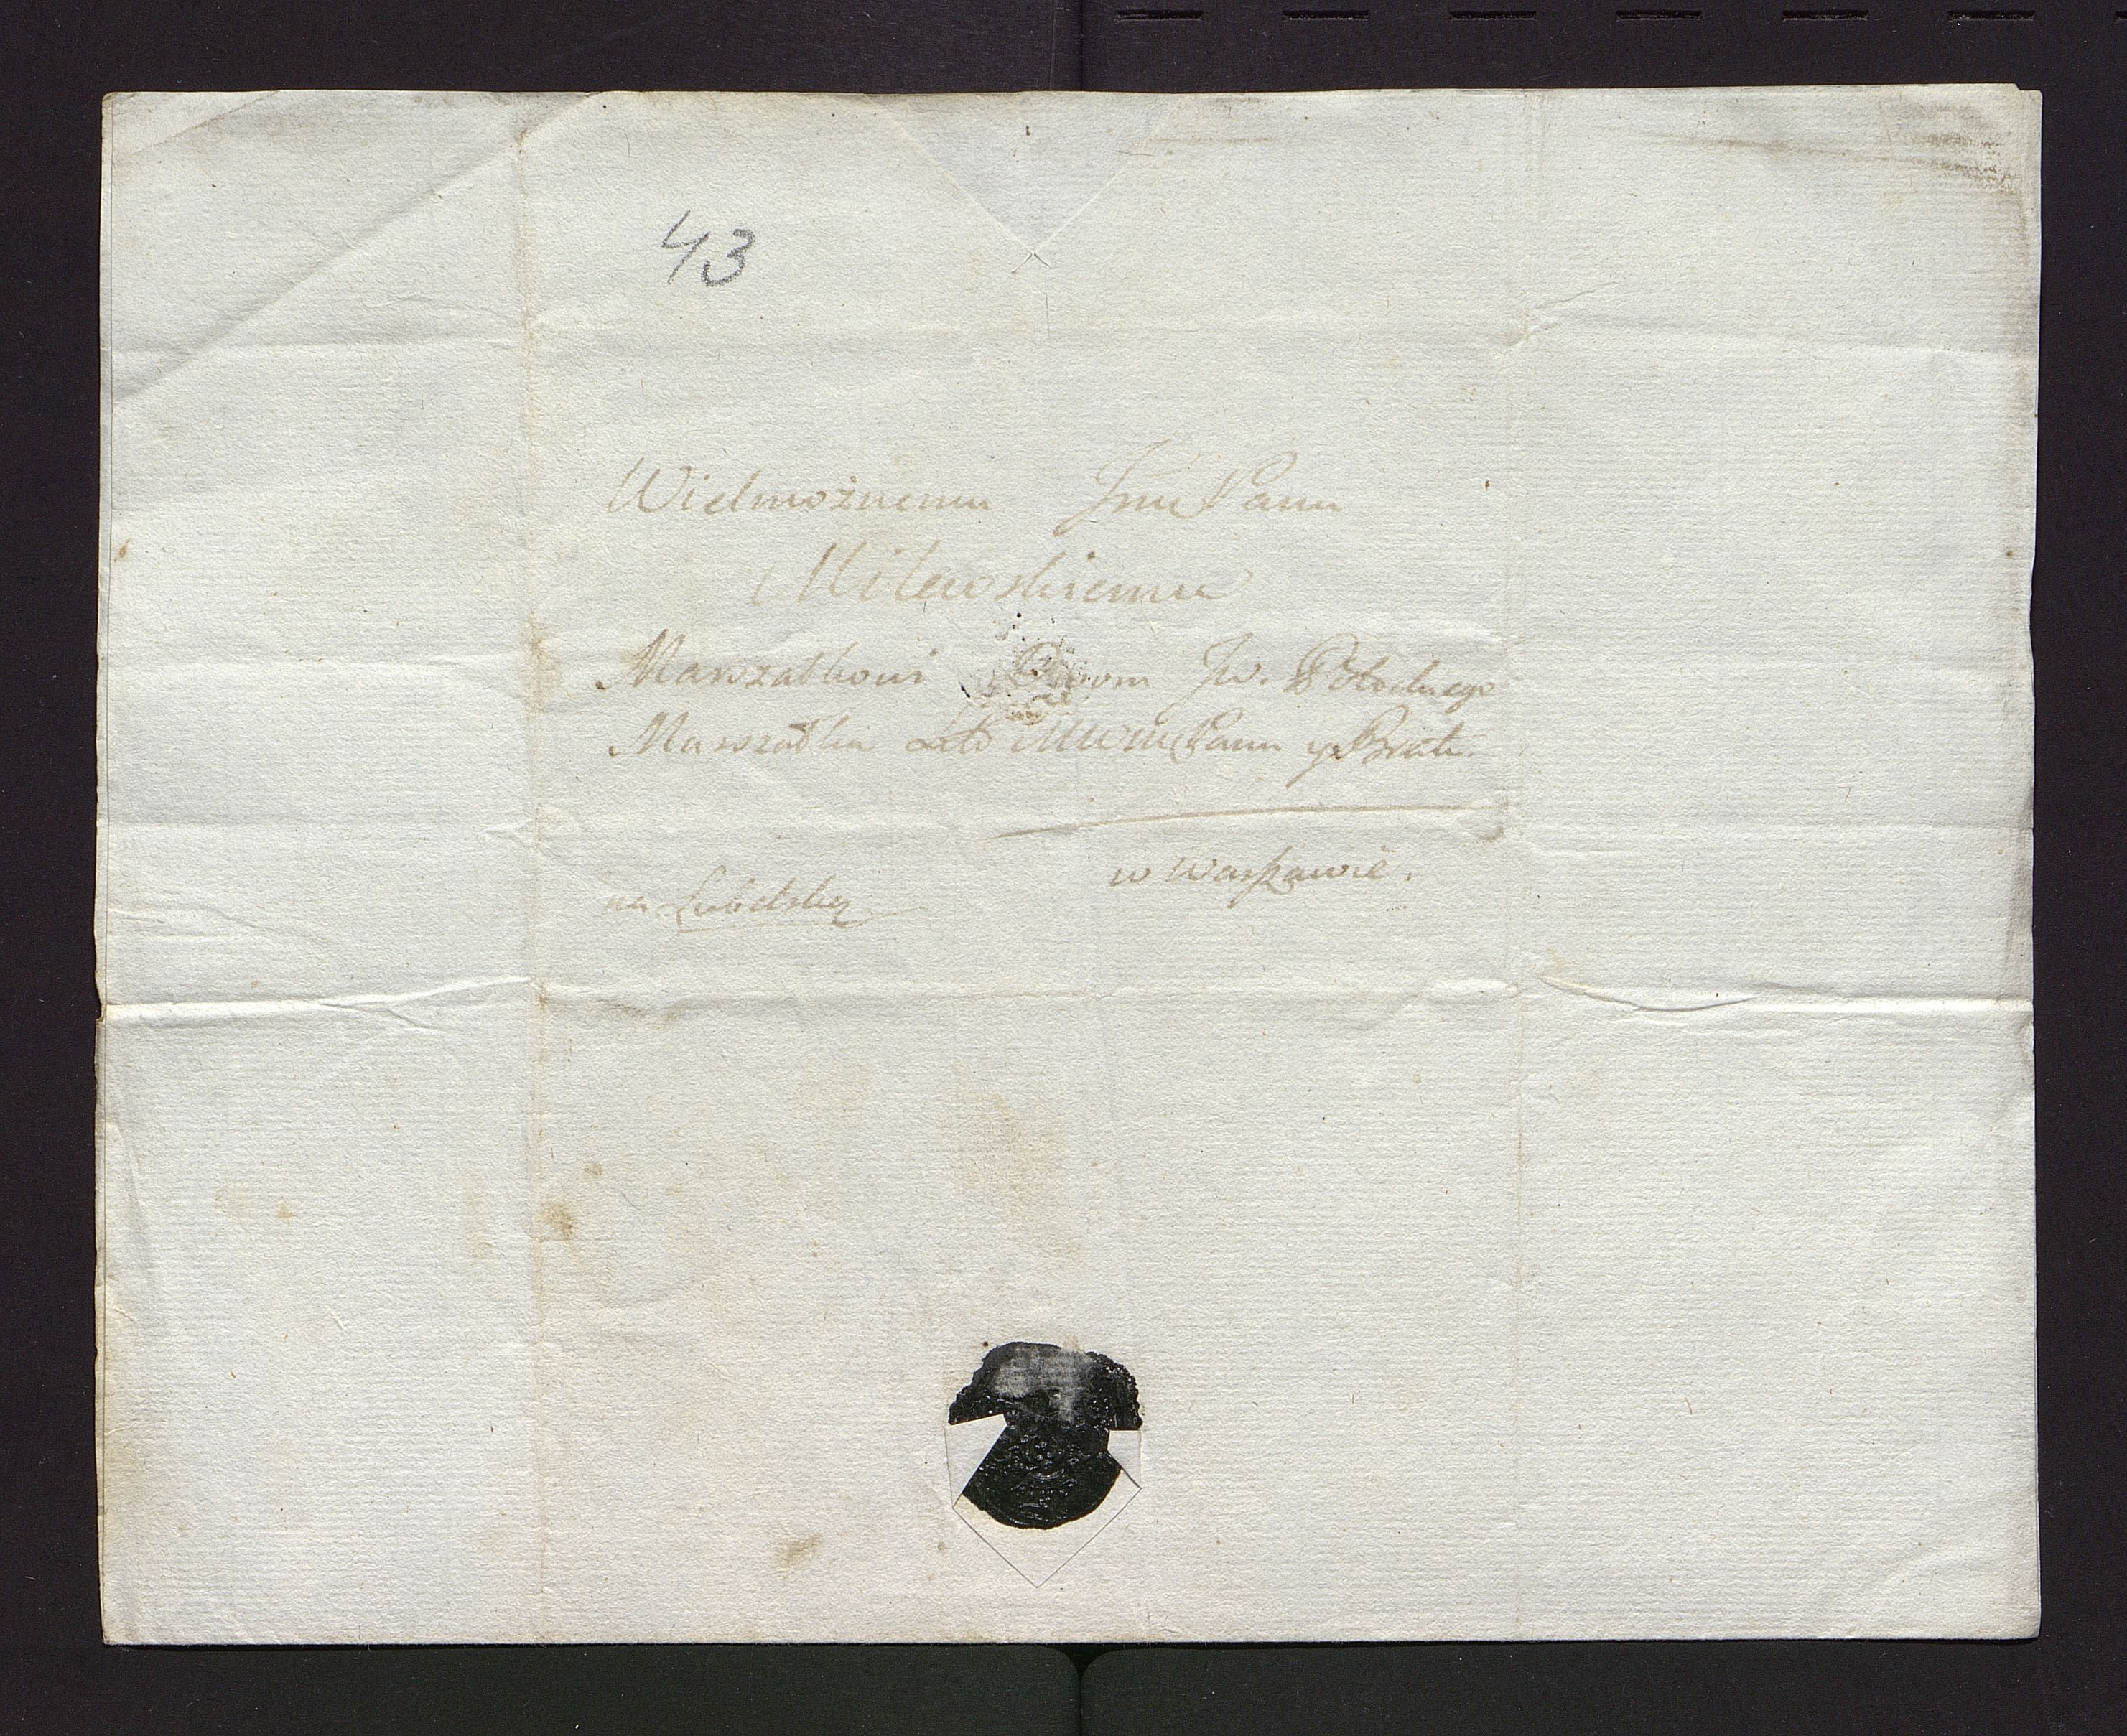 43
Wielmożnemu Jmć Panu
Milewskiemu
Marszałkowi Jw. Potockiego
Marszałka Lito MWMPanu y Bratu.
w Warszawie.
na Lubelską